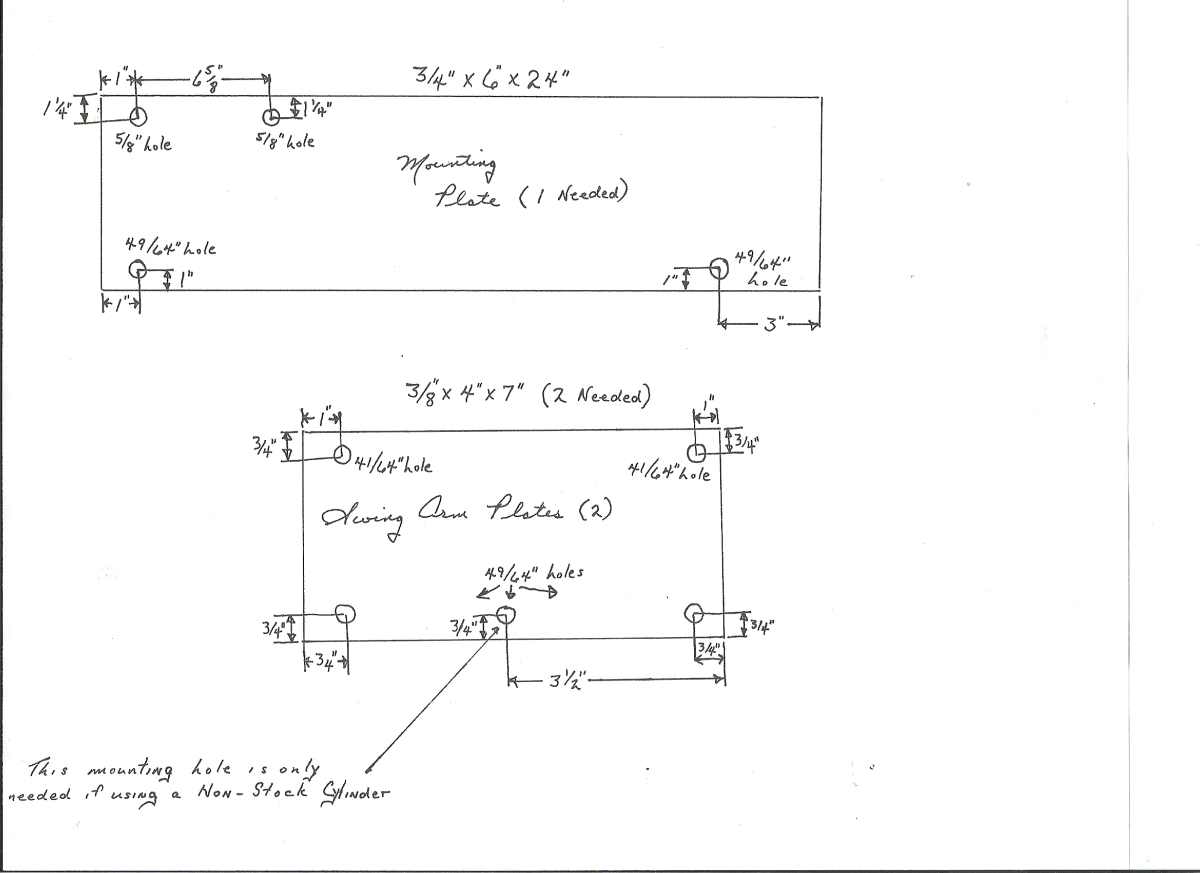 3/4" x 6" x 24"
1" 6 5/8"
1 1/4" 1 1/4"
5/8" hole 5/8" hole
Mounting
Plate (1 Needed)
49/64" hole 49/64"
hole
1" 1"
1" 3"
3/8" x 4" x 7" (2 Needed)
1" 1"
3/4" 3/4"
41/64" hole 41/64" hole
Swing Arm Plates (2)
49/64" holes
3/4" 3/4" 3/4"
3/4" 3/4"
3 1/2"
This mounting hole is only
needed if using a Non-Stock Cylinder